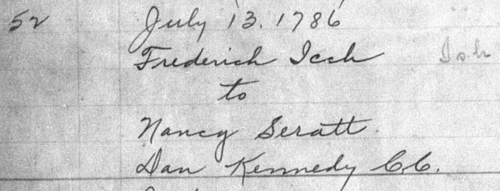 52 July 13. 1786
Frederich Icch Ish
to
Nancy Seratt.
Dan Kennedy C.C.